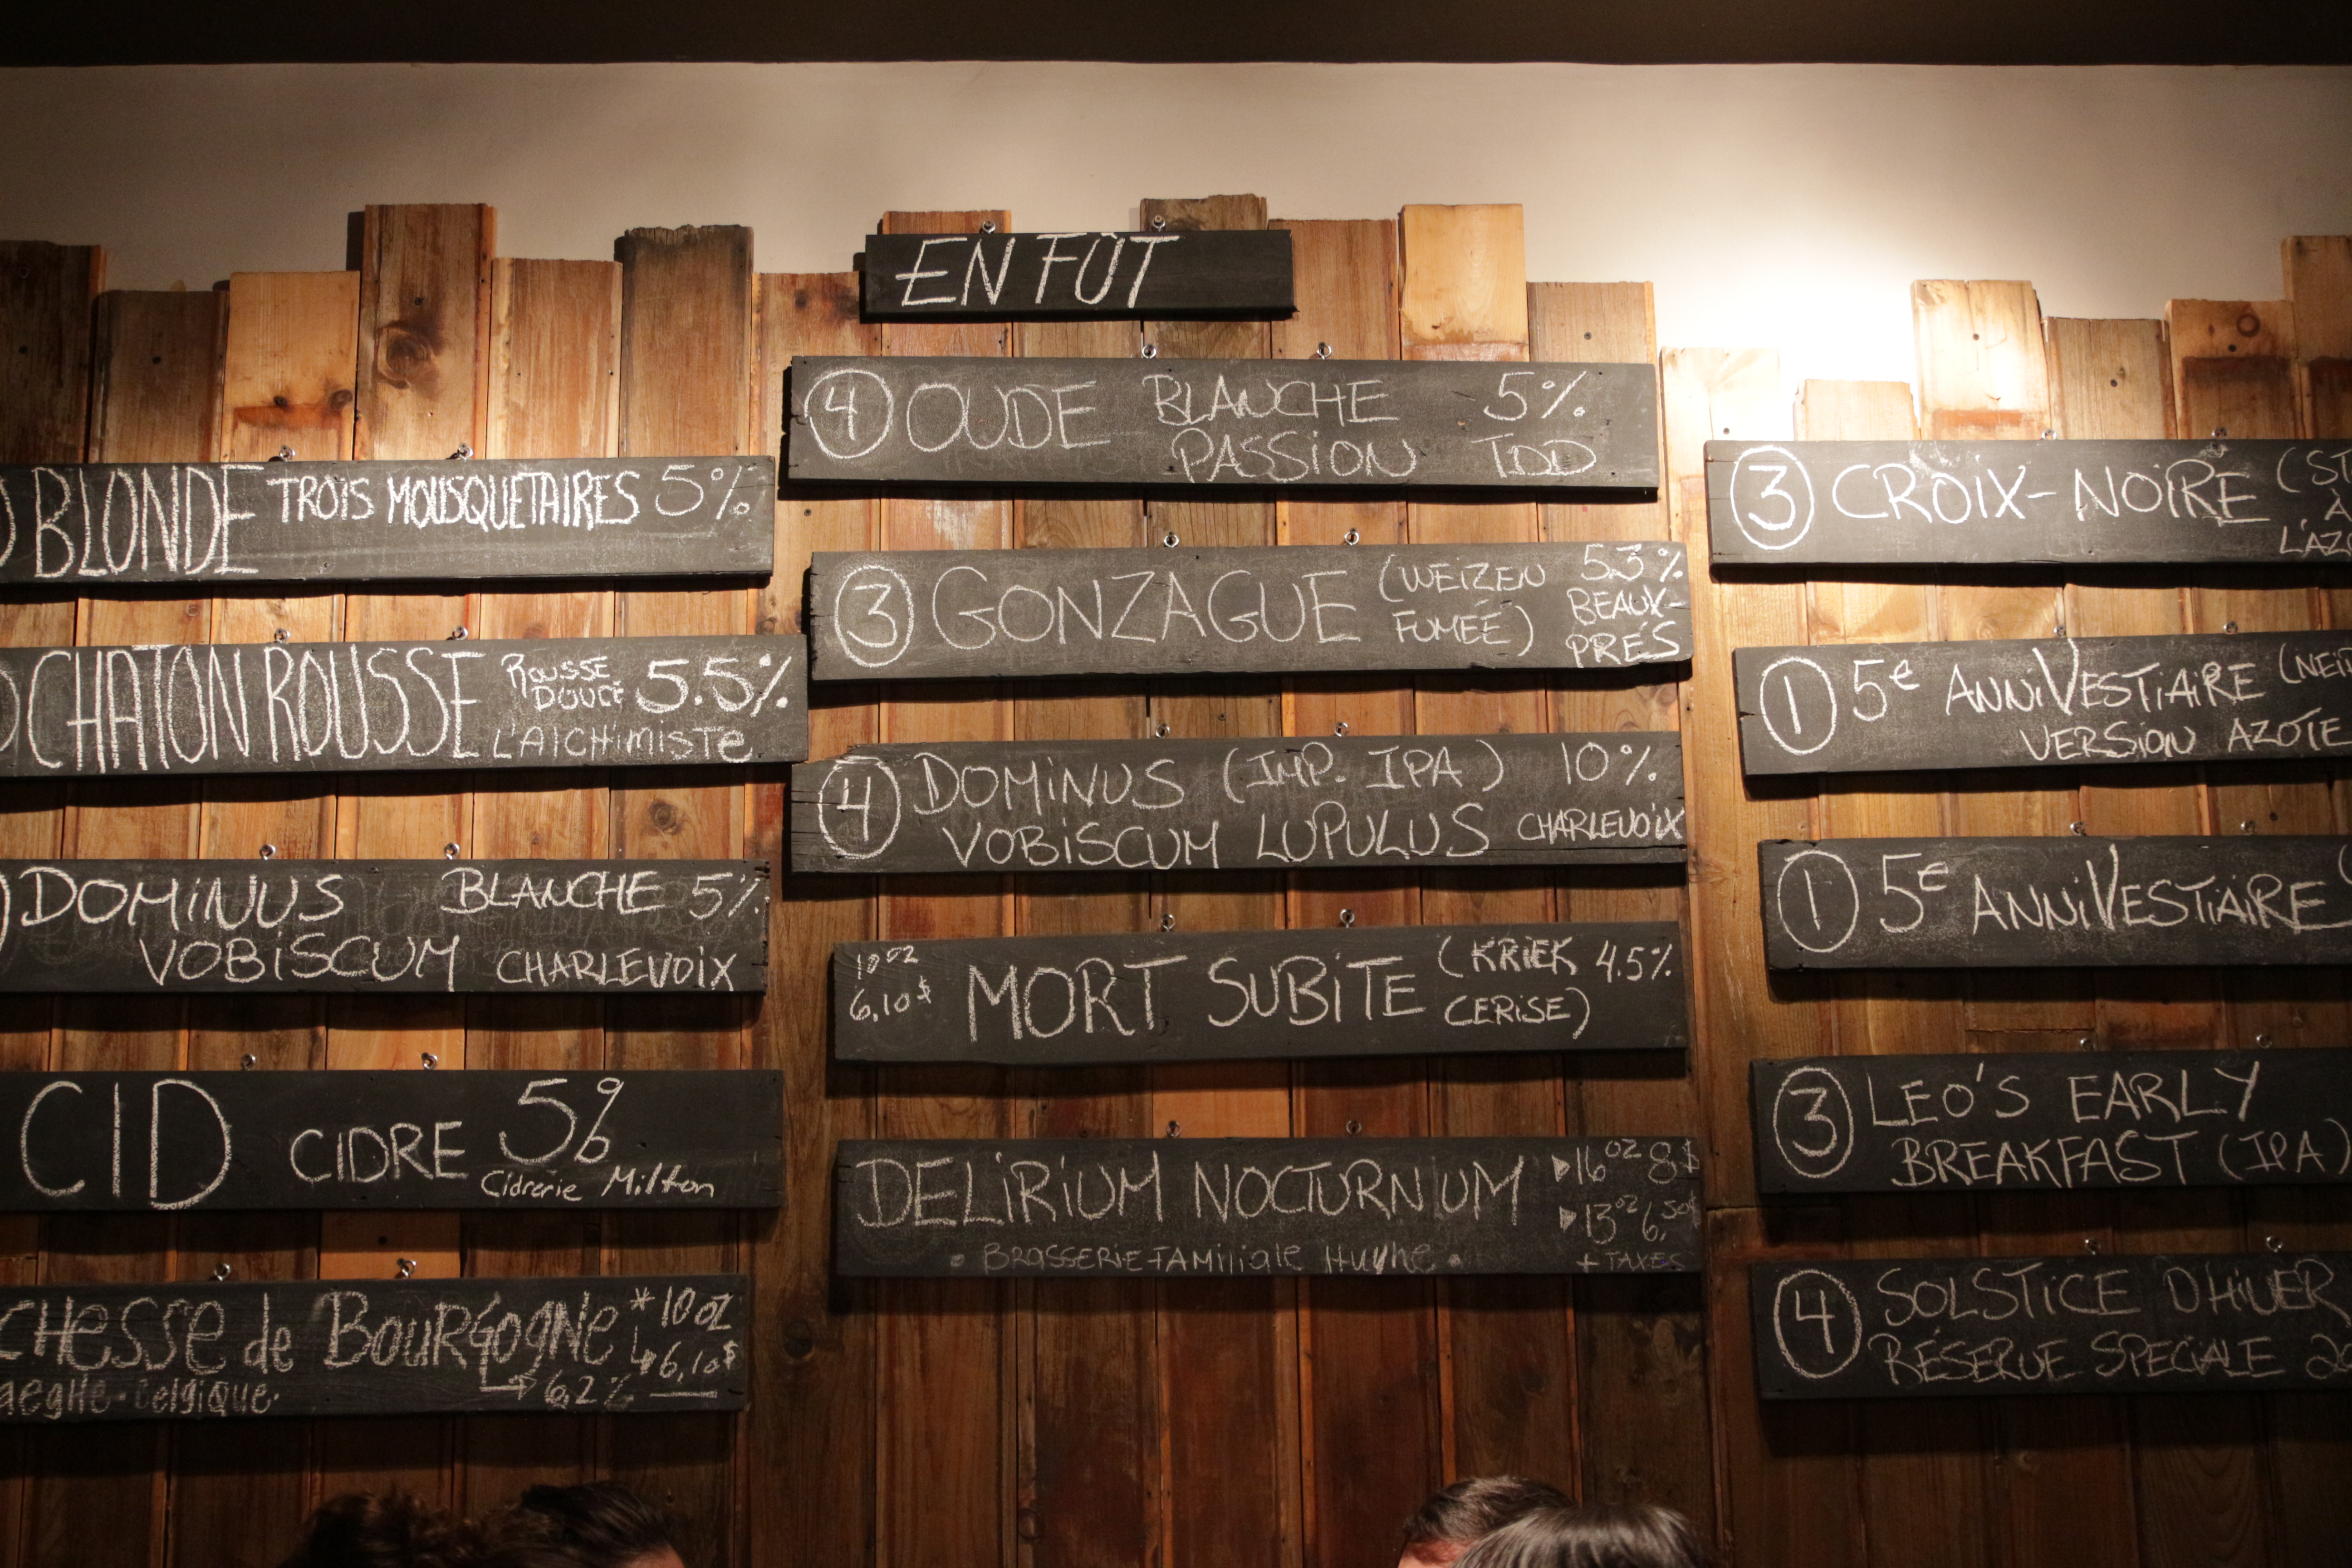 EN FÛT
BLONDE TROIS MOUSQUETAIRES 5%
CHATON ROUSSE ROUSSE DOUCE 5.5%
L'AlCHiMiSTe
DOMiNUS BLANCHE 5%
VOBiSCUM CHARLEVOiX
CID CIDRE 5%
Cidrerie Milton
CHESSE de BOURGOGNE * 10 oz
6,10$
aeghe · Belgique · 6,2%
4 OUDE BLANCHE 5%
PASSION TDD
3 GONZAGUE (WEIZEN 5.3%
FUMÉE) BEAUX-
PRÉS
4 DOMiNUS (IMP. IPA) 10%
VOBiSCUM LUPULUS CHARLEVOiX
10 oz
6,10$ MORT SUBiTE (KRiEK 4.5%
CERiSE)
DELiRiUM NOCTURNIUM 16 oz 8$
13 oz 6,50$
· BRASSERiE FAMiliale Huyhe · + TAXES
3 CROiX-NOiRE (ST
À
L'AZO
1 5e ANNiVESTiAiRE (NEi
VERSiON AZOTE
1 5E ANNiVESTiAiRE (
3 LEO'S EARLY
BREAKFAST (IPA)
4 SOLSTiCE D'HiVER
RÉSERVE SPECiALE 20